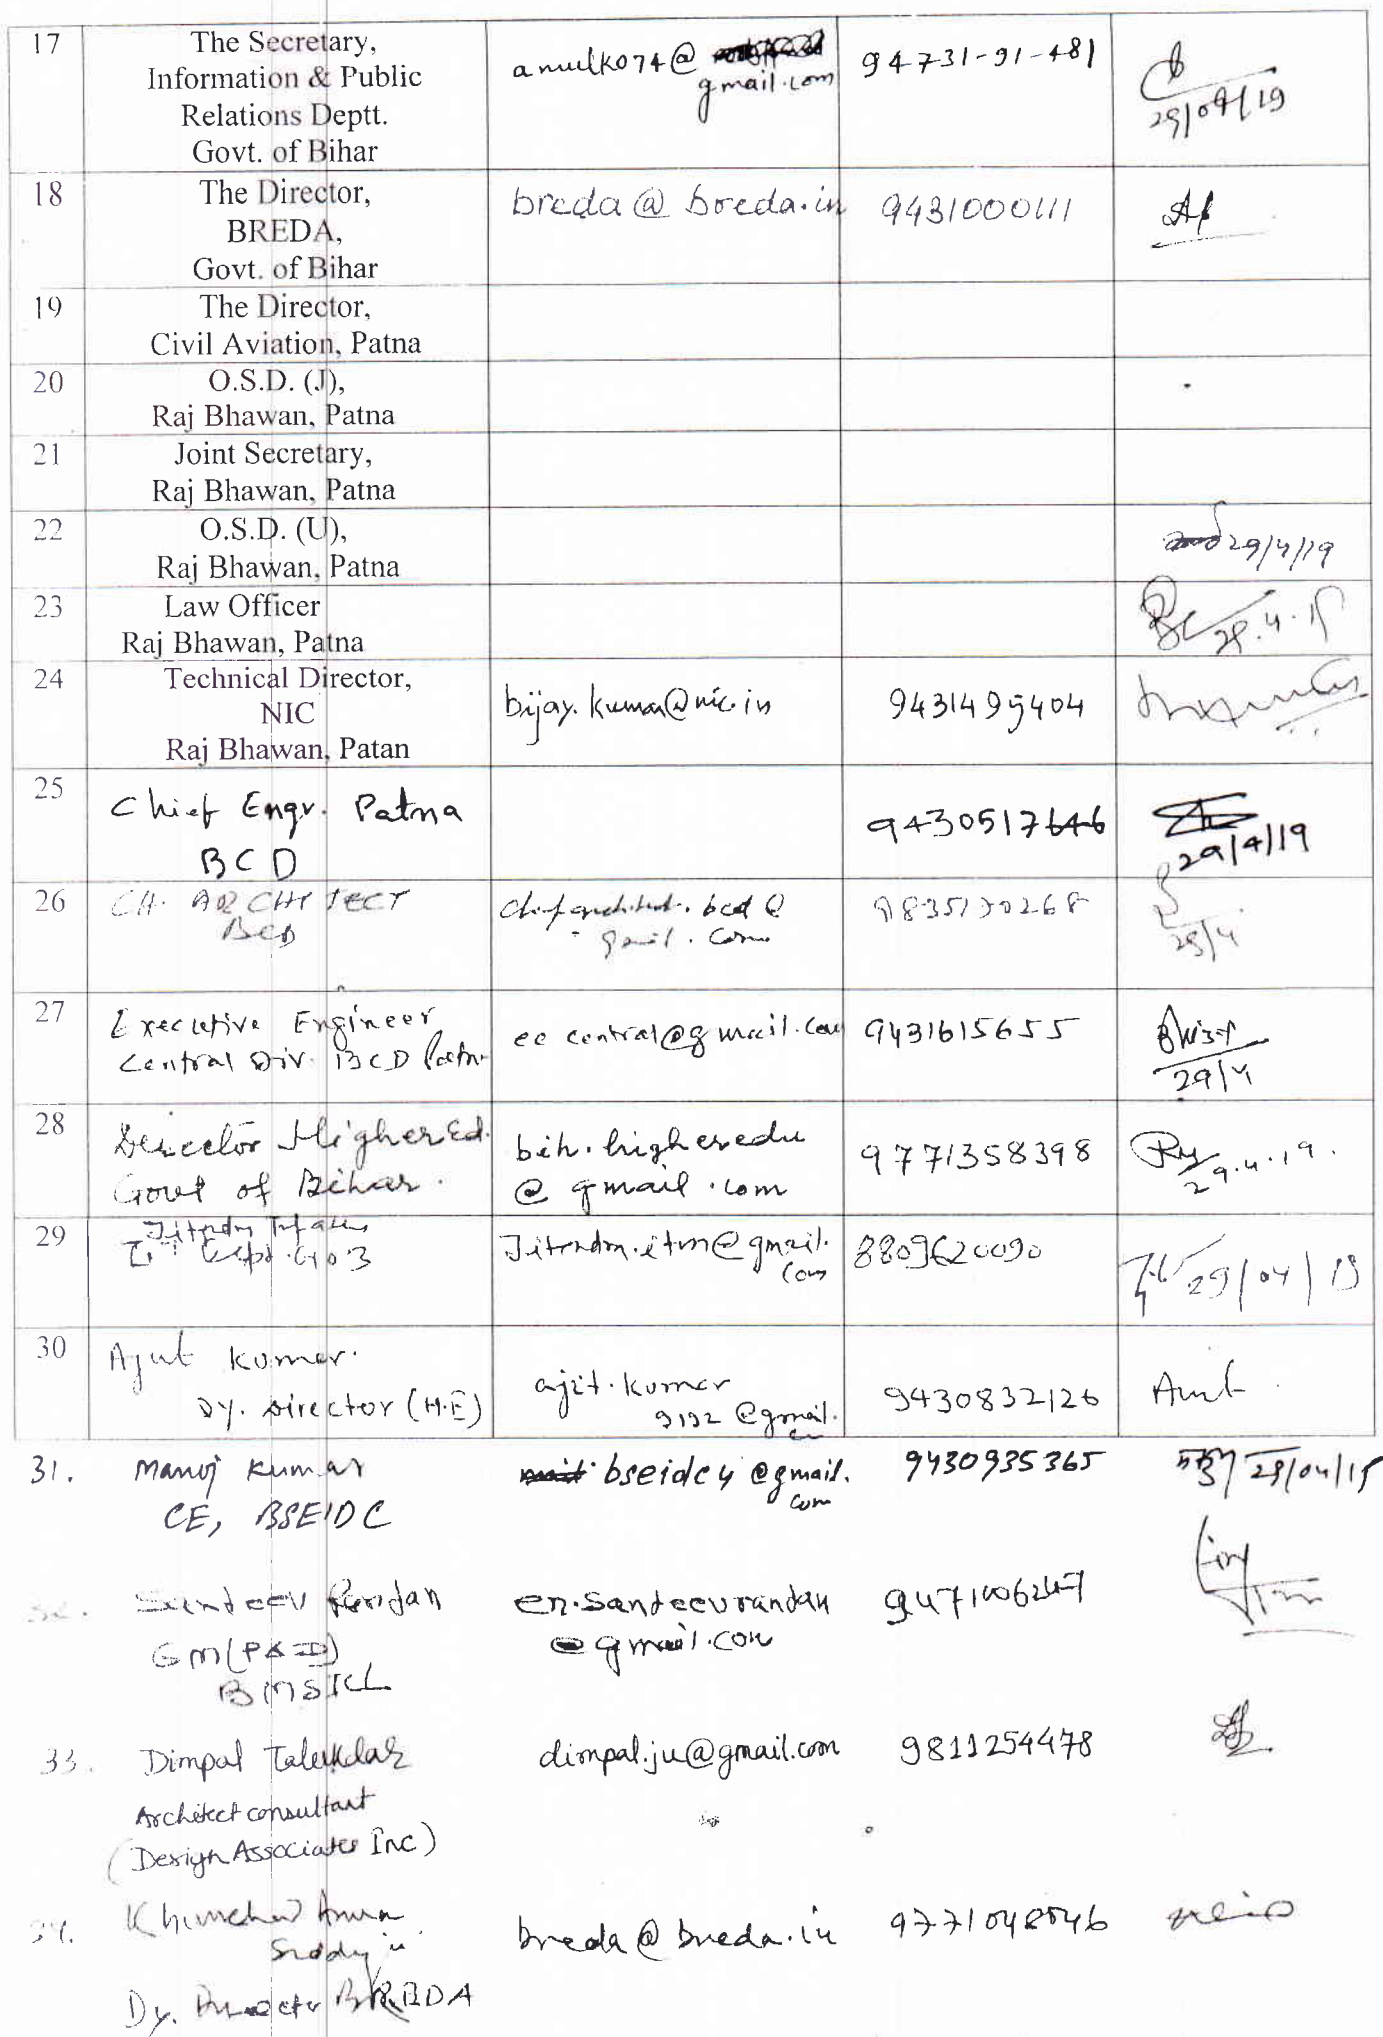 17
The Secretary,
Information & Public
Relations Deptt.
Govt. of Bihar
amulk074@
gmail.com
94731-91-481
29/04/19
18
The Director,
BREDA,
Govt. of Bihar
breda@breda.in
9431000111
19
The Director,
Civil Aviation, Patna
20
O.S.D. (J),
Raj Bhawan, Patna
21
Joint Secretary,
Raj Bhawan, Patna
22
O.S.D. (U),
Raj Bhawan, Patna
29/4/19
23
Law Officer
Raj Bhawan, Patna
24
Technical Director,
NIC
Raj Bhawan, Patan
bijay.kumar@nic.in
9431495404
25
Chief Engr. Patna
BCD
9430517646
29/4/19
26
CH. ARCHITECT
BCD
chiefarchitect.bcd@
gmail.com
27
Executive Engineer
Central Div. BCD Patna
ee central@gmail.com
9431615655
29/4
28
Director Higher Ed.
Govt of Bihar.
bih.higheredu
@gmail.com
9771358398
29.4.19.
29
Jitendra
IT Dept.
Jitendra.itm@gmail.
com
8809620090
29/04/19
30
Ajit Kumar.
Dy. Director (H.E)
ajit.kumar
9192@gmail.
9430832126
31.
Manoj Kumar
CE, BSEIDC
bseidc4@gmail.
com
9430935365
Sanjeev Ranjan
BMSICL
en.sanjeevranjan
@gmail.com
33.
Dimpal Talukdar
Architect consultant
(Design Associates Inc)
dimpal.ju@gmail.com
9811254478
34.
Dy. Director BREDA
breda@breda.in